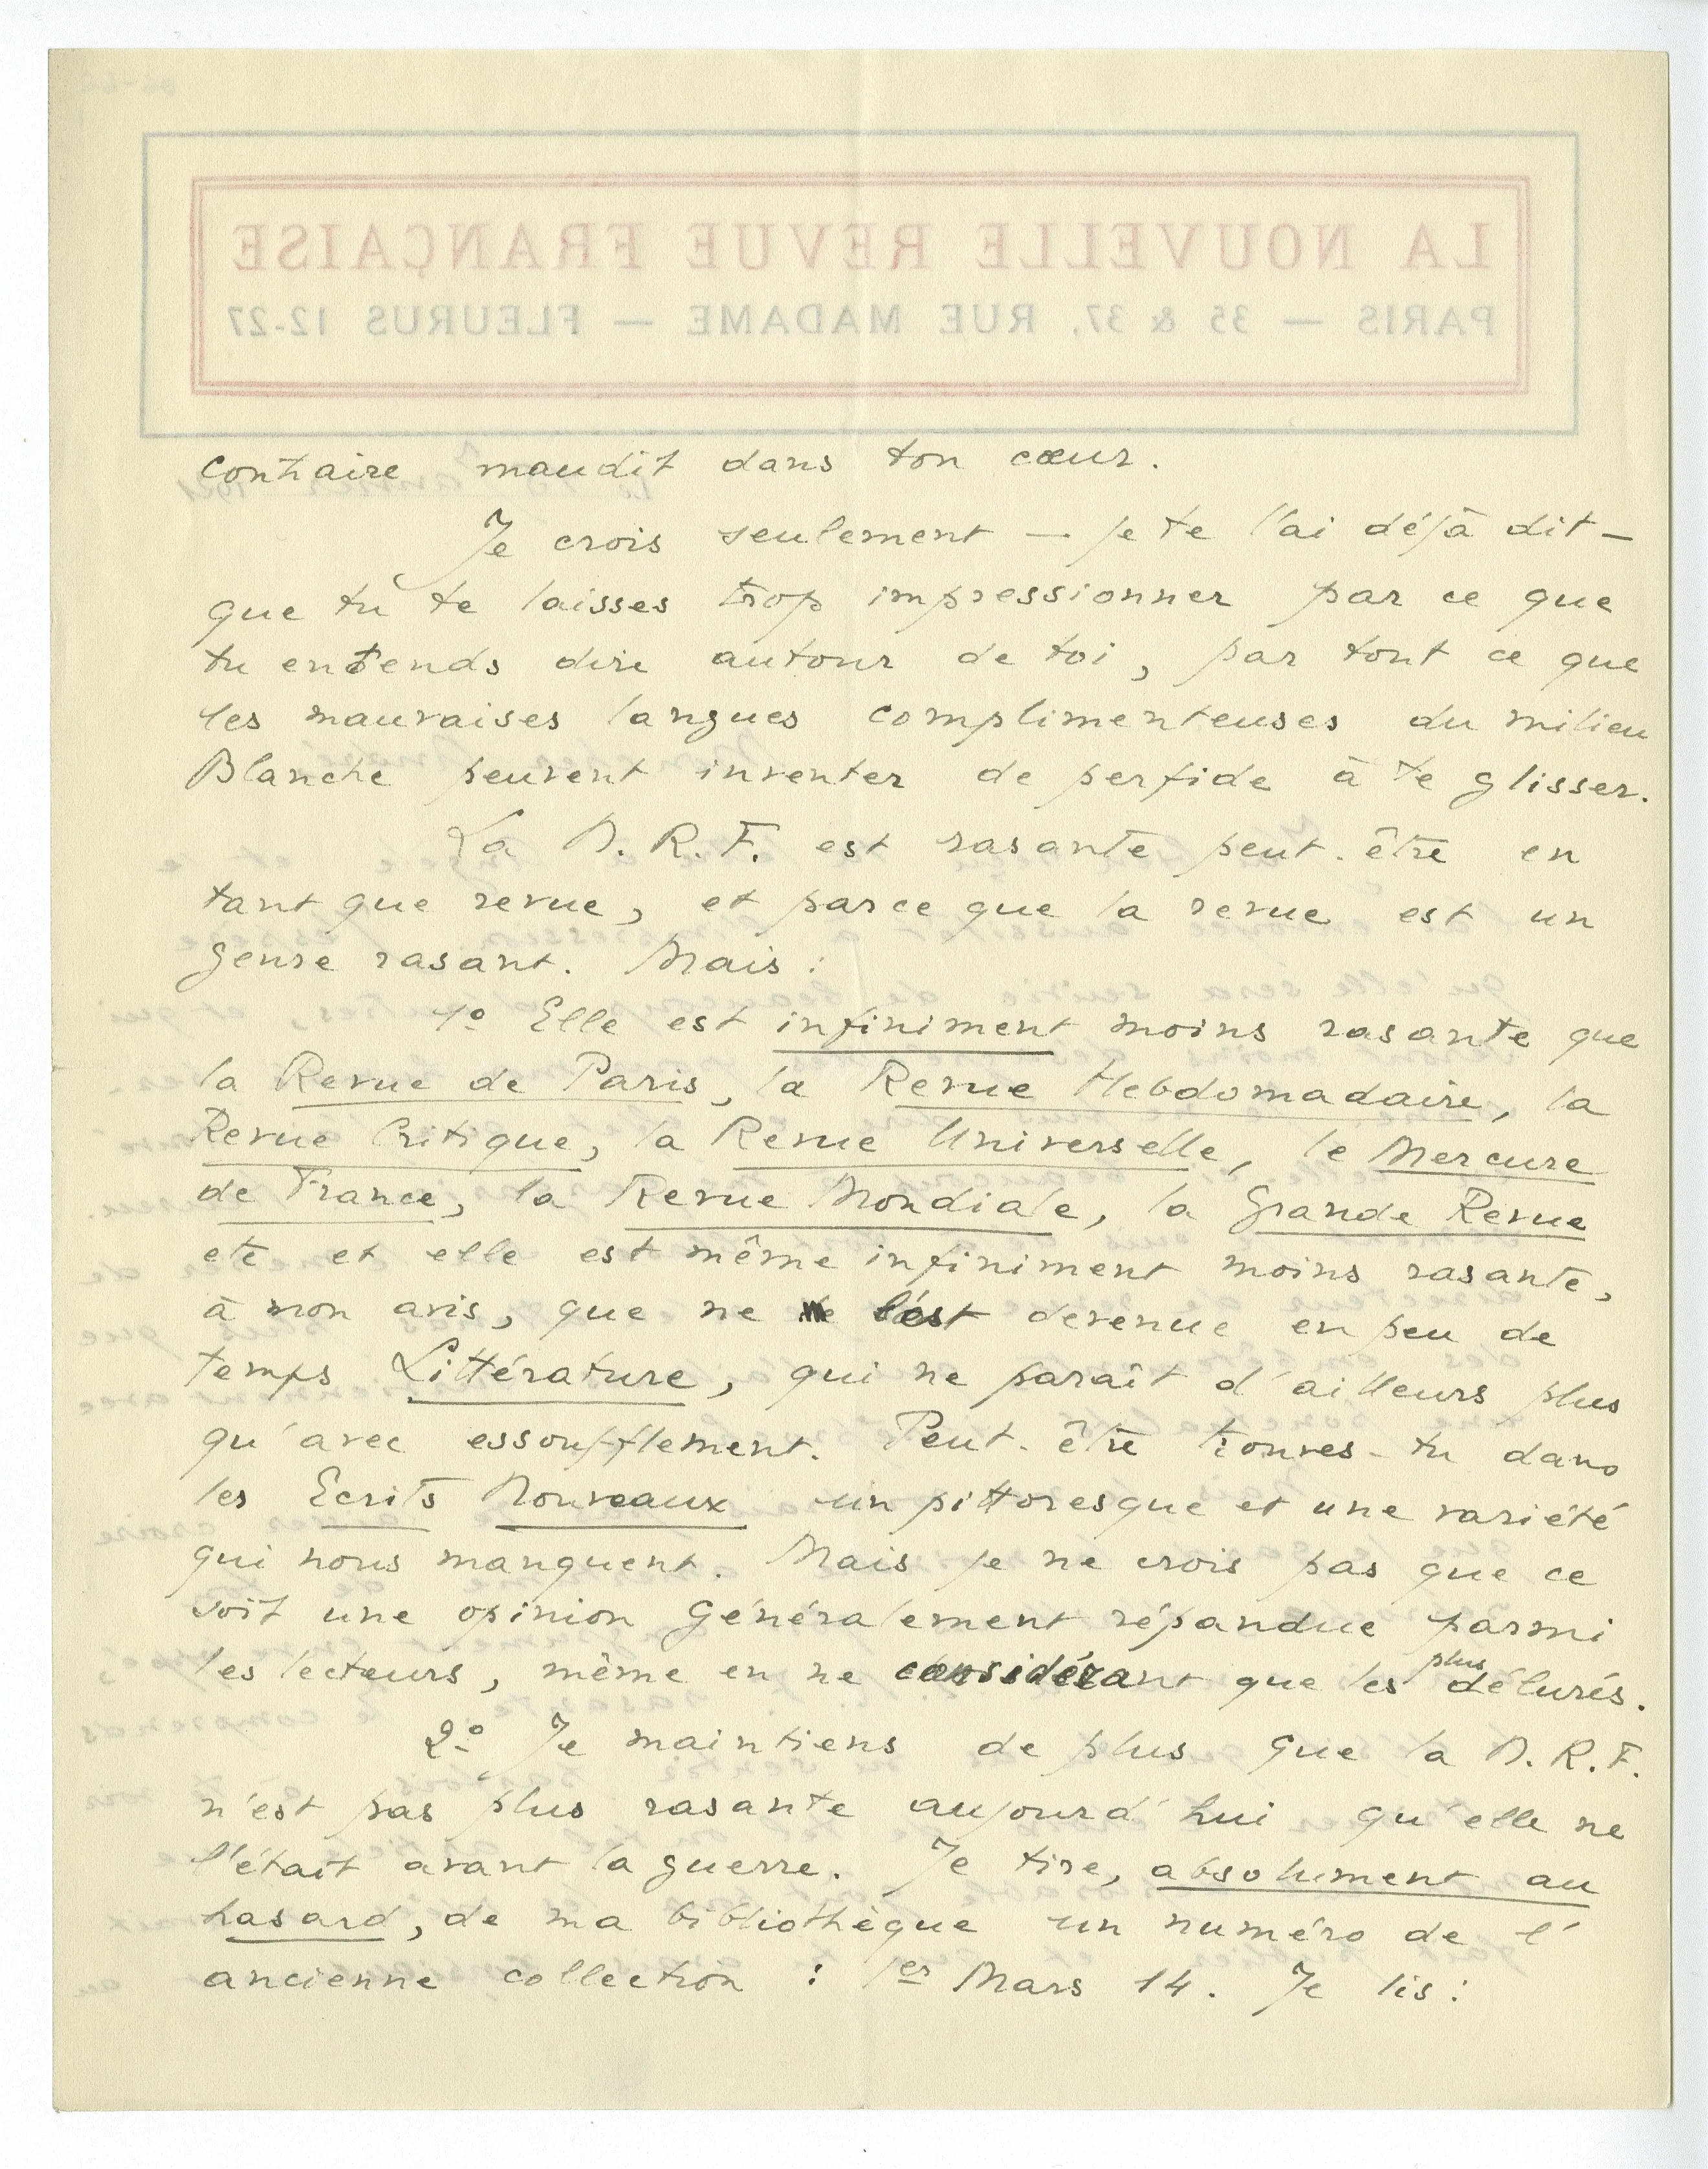 LA NOUVELLE REVUE FRANÇAISE
PARIS — 35 & 37, RUE MADAME — FLEURUS 12-27
contraire maudit dans ton cœur.
Je crois seulement — je te l'ai déjà dit —
que tu te laisses trop impressionner par ce que
tu entends dire autour de toi, par tout ce que
les mauvaises langues complimenteuses du milieu
Blanche peuvent inventer de perfide à te glisser.
La N. R. F. est rasante peut-être en
tant que revue, et parce que la revue est un
genre rasant. Mais :
1º Elle est infiniment moins rasante que
la Revue de Paris, la Revue Hebdomadaire, la
Revue Critique, la Revue Universelle, le Mercure
de France, la Revue Mondiale, la Grande Revue
etc et elle est même infiniment moins rasante,
à mon avis, que ne l'est devenue en peu de
temps Littérature, qui ne paraît d'ailleurs plus
qu'avec essoufflement. Peut-être trouves-tu dans
les Ecrits Nouveaux un pittoresque et une variété
qui nous manquent. Mais je ne crois pas que ce
soit une opinion généralement répandue parmi
les lecteurs, même en ne considérant que les plus délurés.
2º Je maintiens de plus que la N. R. F.
n'est pas plus rasante aujourd'hui qu'elle ne
l'était avant la guerre. Je tire, absolument au
hasard, de ma bibliothèque un numéro de l'
ancienne collection : 1er Mars 14. Je lis :